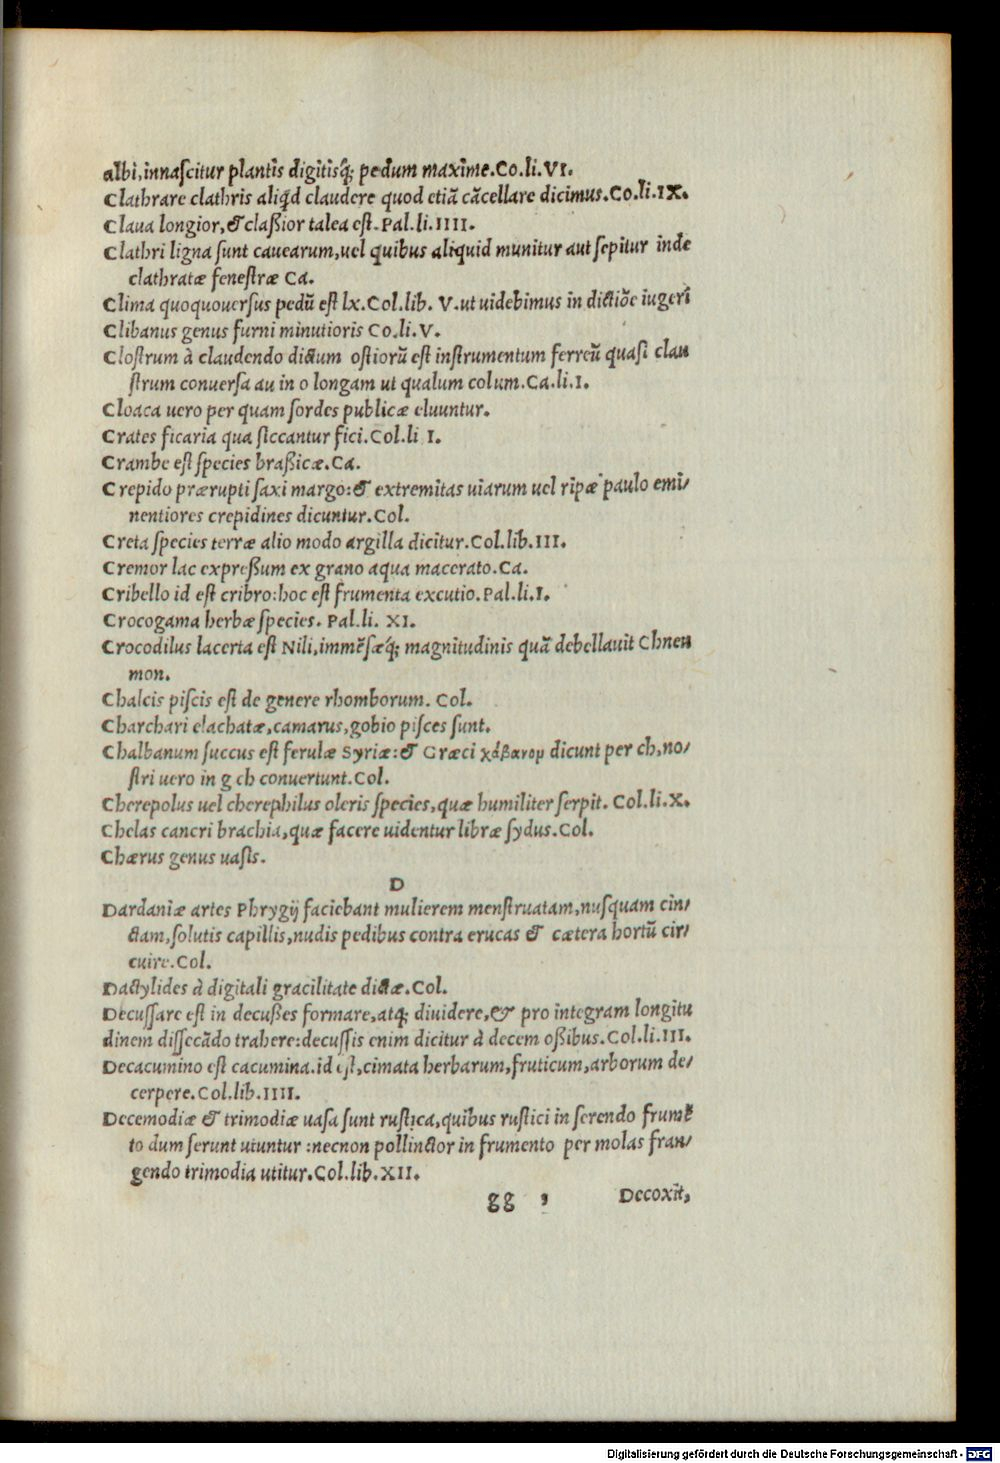 albi,innaſcitur plantis digitisq́; pedum maxime.Co.li.VI.
Clathrare clathris aliq̃d claudere quod etiã cãcellare dicimus.Co.li.IX.
Claua longior,& claßior talea eſt.Pal.li.IIII.
Clathri ligna ſunt cauearum,uel quibus aliquid munitur aut ſepitur inde
clathratæ feneſtræ Ca.
Clima quoquouerſus pedũ eſt lx.Col.lib. V.ut uidebimus in dictiõe iugeri
Clibanus genus furni minutioris Co.li.V.
Cloſtrum à claudendo dictum oſtiorũ eſt inſtrumentum ferreũ quaſi clau
ſtrum conuerſa au in o longam ut qualum colum.Ca.li.I.
Cloaca uero per quam ſordes publicæ eluuntur.
Crates ficaria qua ſiccantur fici.Col.li I.
Crambe eſt ſpecies braßicæ.Ca.
Crepido prærupti ſaxi margo:& extremitas uiarum uel ripæ paulo emi/
nentiores crepidines dicuntur.Col.
Creta ſpecies terræ alio modo argilla dicitur.Col.lib.III.
Cremor lac expreßum ex grano aqua macerato.Ca.
Cribello id eſt cribro:hoc eſt frumenta excutio.Pal.li.I.
Crocogama herbæ ſpecies. Pal.li. XI.
Crocodilus lacerta eſt Nili,immẽſæq́; magnitudinis quã debellauit Chneu
mon.
Chalcis piſcis eſt de genere rhomborum. Col.
Charchari elachatæ,camarus,gobio piſces ſunt.
Chalbanum ſuccus eſt ferulæ Syriæ:& Græci χάβανομ dicunt per ch,no/
ſtri uero in g ch conuertunt.Col.
Cherepolus uel cherephilus oleris ſpecies,quæ humiliter ſerpit. Col.li.X.
Chelas cancri brachia,quæ facere uidentur libræ ſydus.Col.
Chærus genus uaſis.
D
Dardaniæ artes Phrygij faciebant mulierem menſtruatam,nuſquam cin/
ctam,ſolutis capillis,nudis pedibus contra erucas & cætera hortũ cir/
cuire.Col.
Dactylides à digitali gracilitate dictæ.Col.
Decuſſare eſt in decußes formare,atq́; diuidere,& pro integram longitu
dinem diſſecãdo trahere:decuſſis enim dicitur à decem oßibus.Col.li.III.
Decacumino eſt cacumina.id eſt,cimata herbarum,fruticum,arborum de/
cerpere.Col.lib.IIII.
Decemodiæ & trimodiæ uaſa ſunt ruſtica,quibus ruſtici in ſerendo frumẽ
to dum ſerunt utuntur :necnon pollinctor in frumento per molas fran/
gendo trimodia utitur.Col.lib.XII.
gg , Decoxit,
Digitalisierung gefördert durch die Deutsche Forschungsgemeinschaft - DFG